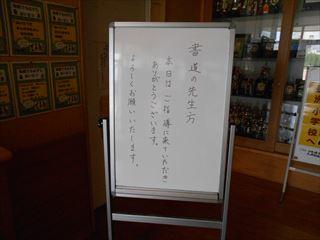 書道の先生方
本日はご指導に来ていただき
ありがとうございます。
よろしくお願いいたします。
小学校へ